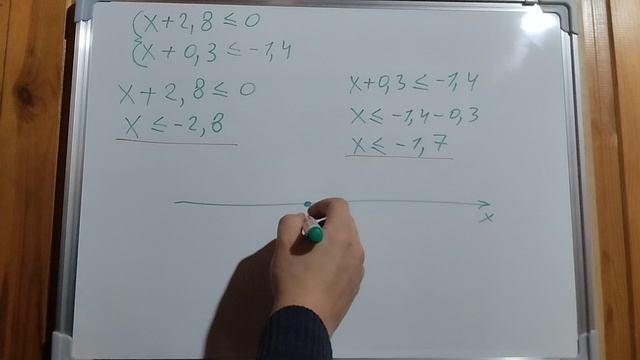 {x+2,8≤0
{x+0,3≤-1,4
x+2,8≤0
x≤-2,8
x+0,3≤-1,4
x≤-1,4-0,3
x≤-1,7
x